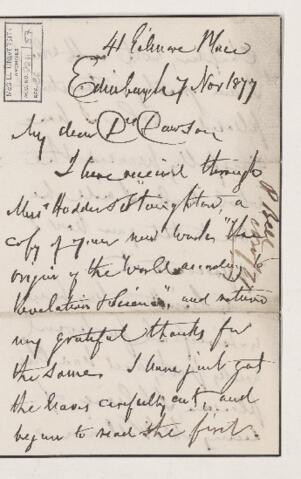 McGILL UNIVERSITY
ARCHIVES
ACC. NO.
REF.
41 Gilmore Place
Edinburgh 7 Nov 1877
My dear Dr Dawson
I have received through
Messrs Hodder & Stoughton, a
copy of your new work "The
origin of the World according to
Revelation & Science", and return
my grateful thanks for
the same. I have just got
the leaves carefully cut, and
begun to read the first